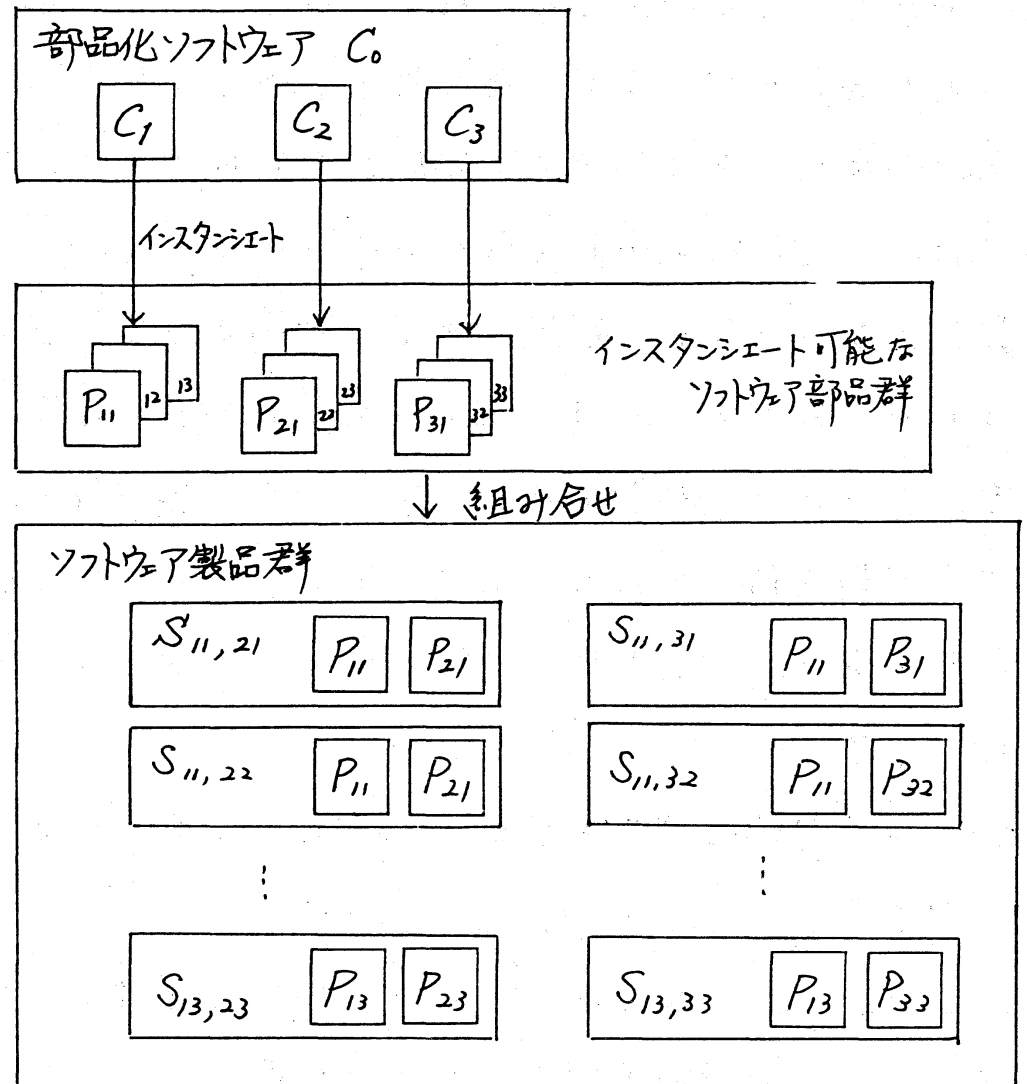 部品化ソフトウェア C₀
C₁ C₂ C₃
インスタンシエート
P₁₁ 12 13
P₂₁ 22 23
P₃₁ 32 33
インスタンシエート可能な
ソフトウェア部品群
↓ 組み合せ
ソフトウェア製品群
S₁₁,₂₁ P₁₁ P₂₁
S₁₁,₃₁ P₁₁ P₃₁
S₁₁,₂₂ P₁₁ P₂₁
S₁₁,₃₂ P₁₁ P₃₂
⋮ ⋮
S₁₃,₂₃ P₁₃ P₂₃
S₁₃,₃₃ P₁₃ P₃₃